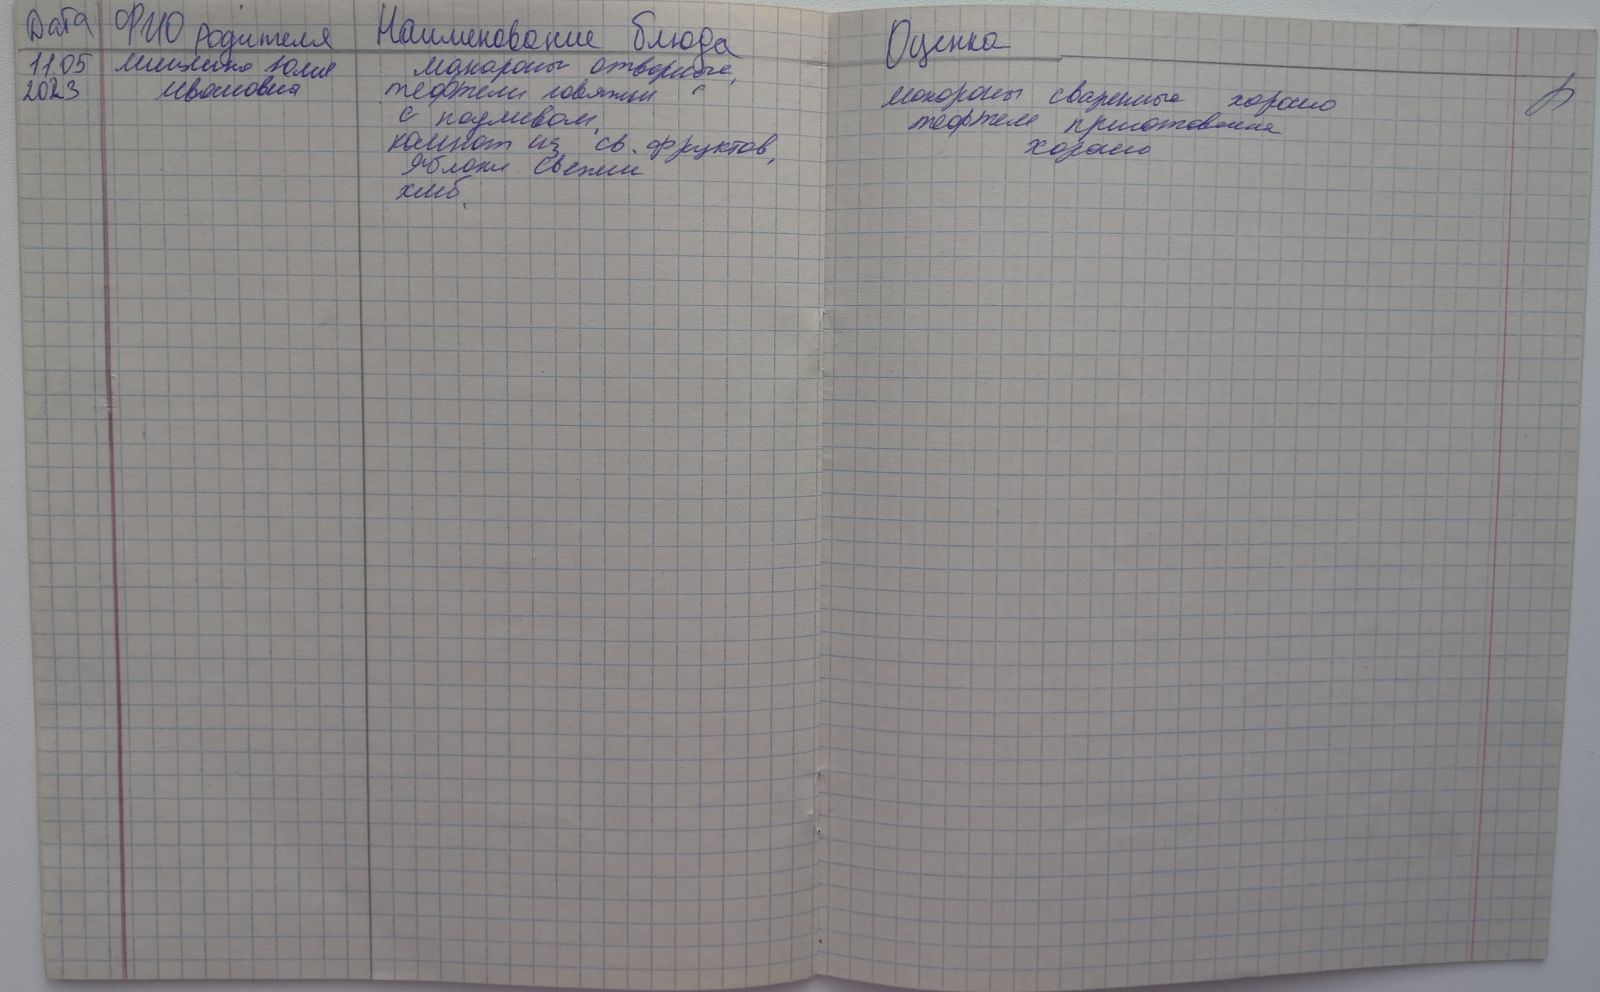 Дата ФИО родителя Наименование блюда Оценка
11.05 Юлия макароны отварные,
2023 Ивановна тефтели говяжьи
с подливом,
компот из св. фруктов,
Яблоки свежии
хлеб.
макароны сваренные хорошо
тефтели приготовлены
хорошо